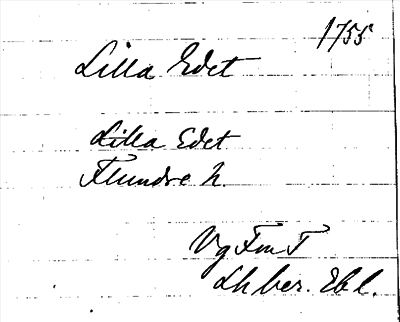 1755
Lilla Edet
Lilla Edet
Flundre h.
Vg Fm T
Lh ber. Ebl.